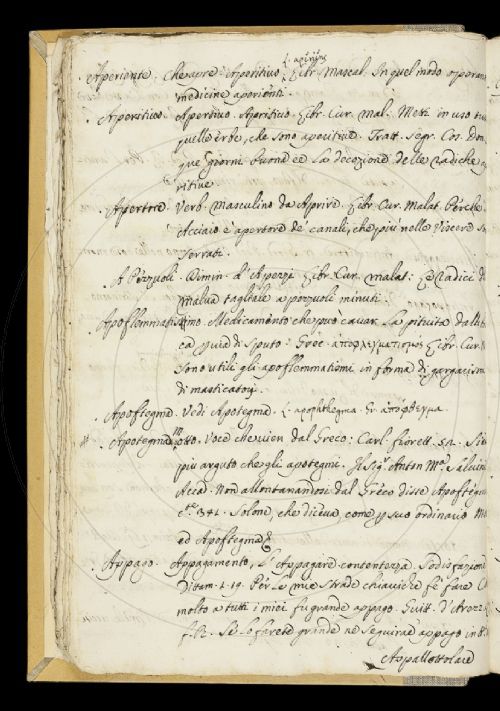 Aperiente. Che apre. Aperitivo. Libr. Mascal. In quel modo operano
medicine aperienti.
Aperitivo. Apertivo. Aperitivo. Libr. Cur. Mal. Metti in uso
quelle erbe, che sono aperitive. Tratt. Segr. Cos. Don.
que giorni buona è la decozione delle radiche
ritive.
Apertore. Verb. Masculino da Aprire. Libr. Cur. Malat. Perche
Acciaio è apertore de' canali, che più nelle Viscere
serrati.
A Pezzuoli. Dimin. d'A pezzi. Libr. Cur. Malat: Le radici di
Malva tagliale a pezzuoli minuti.
Apoflemmatismo. Medicamento che può cavar la pituita dalla
ca per via di sputo: Grec. ἀποφλεγματισμος Libr. Cur.
sono utili gli apoflemmatismi in forma di gargarismi
di masticatorj.
Apoftegma. Vedi Apotegma. L. apophthegma. Gr. ἀπόφθεγμα.
Apotegma. motto. Voce che vien dal Greco: Carl. Fiorett. 52.
più arguto che gli apotegmi. Il Sig.r Anton M.a Salvini
Accad. Non allontanandosi dal Greco disse Apoftegma
c.te 341. Solone, che diceva come per suo ordinario
ed Apoftegma &
Appago. Appagamento, L'Appagare contentezza. Sodisfazione
Dittam. 1. 19. Per le mie strade chiaviche fe' fare
molto a tutti i miei fu grande appago. Guitt. d'Arezzo
f. R. Se lo farete grande ne seguirà appago in
Appallottolare